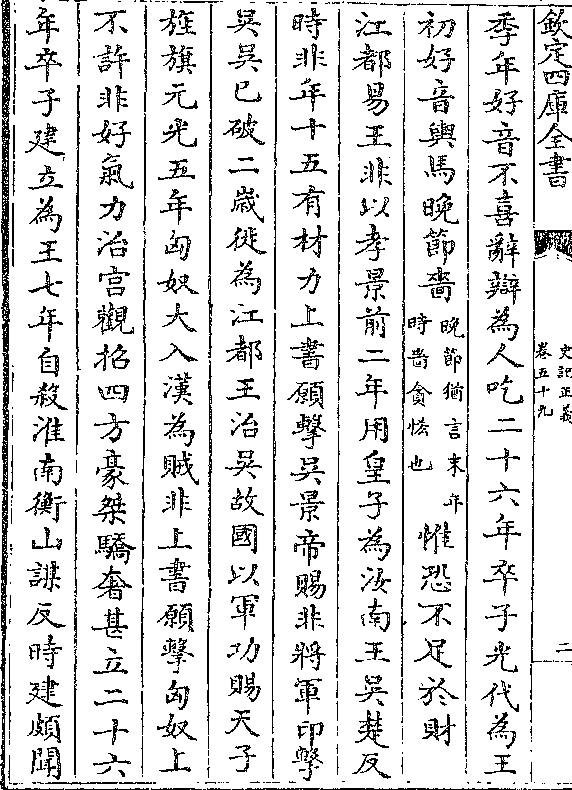 欽定四庫全書
史記正義
卷五十九
二
季年好音不喜辭辯為人吃二十六年卒子光代為王
初好音輿馬晚節嗇晚節猶言末年時嗇貪恡也惟恐不足於財
江都易王非以孝景前二年用皇子為汝南王吳楚反
時非年十五有材力上書願擊吳景帝賜非將軍印擊
吳吳已破二歲徙為江都王治吳故國以軍功賜天子
旌旗元光五年匈奴大入漢為賊非上書願擊匈奴上
不許非好氣力治宫觀招四方豪桀驕奢甚立二十六
年卒子建立為王七年自殺淮南衡山謀反時建頗聞